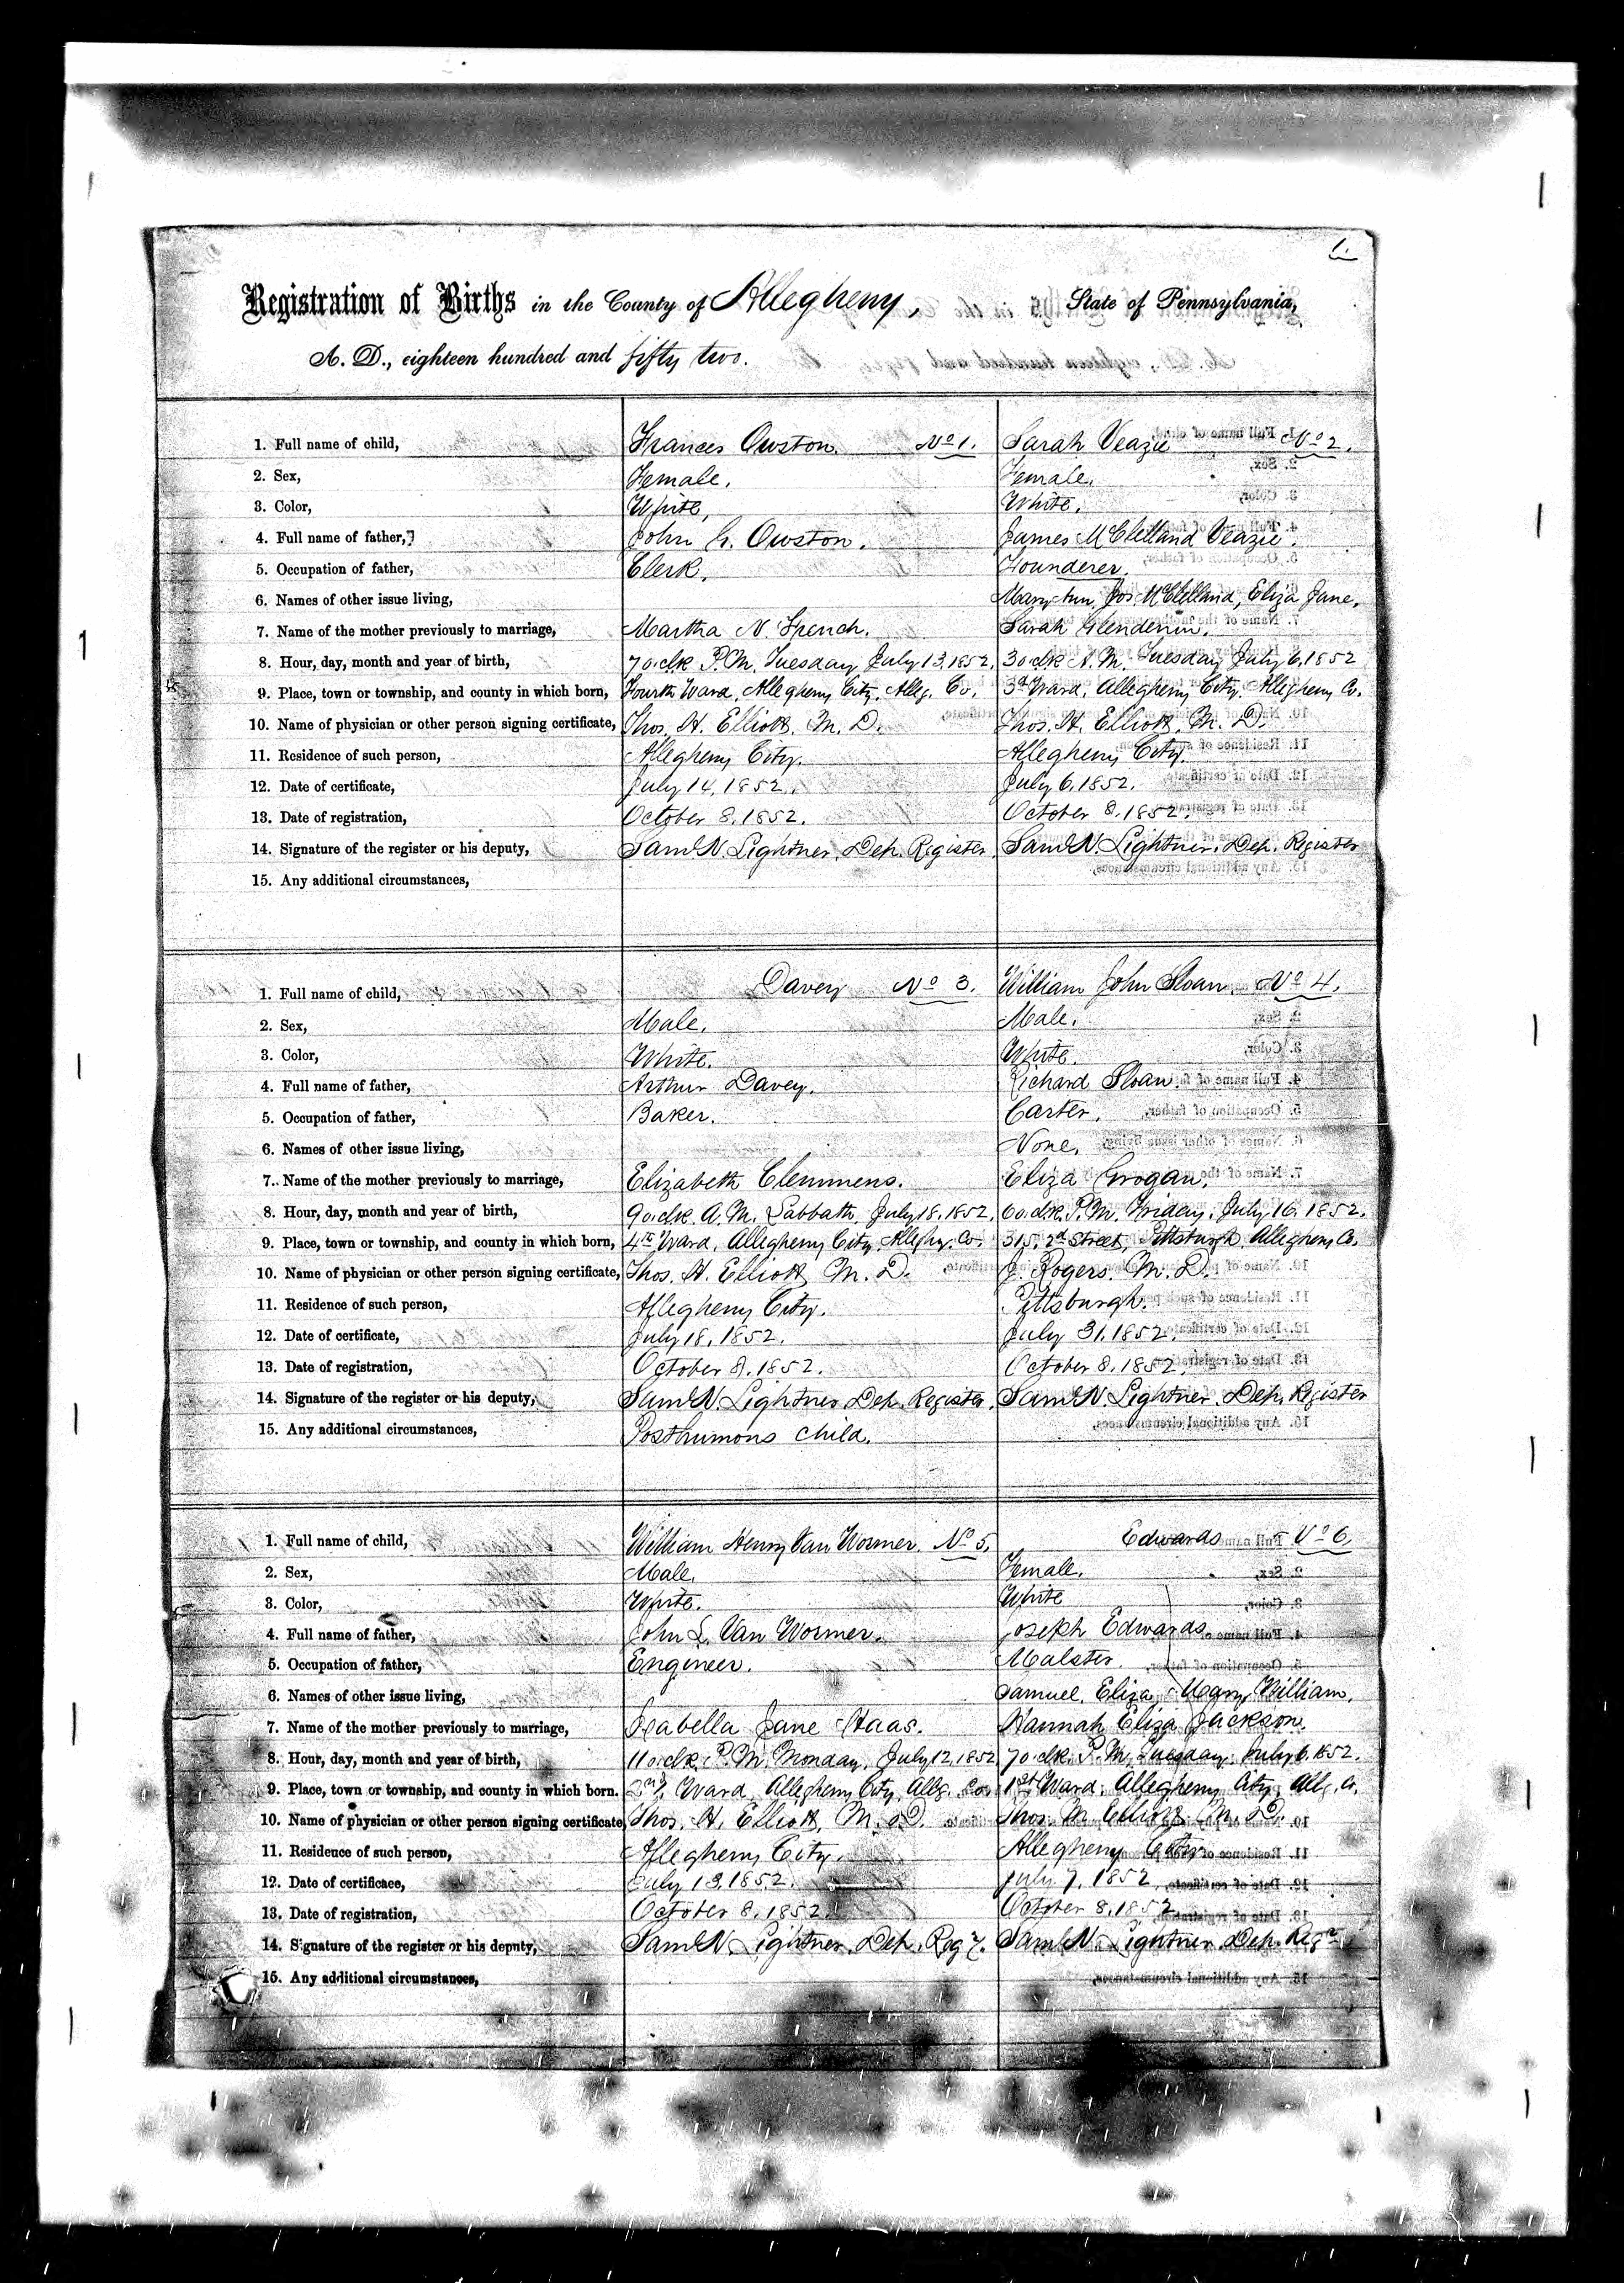 1.
Registration of Births in the County of Allegheny, State of Pennsylvania,
A. D., eighteen hundred and fifty two.
1. Full name of child, Frances Owston. No 1. Sarah Veazie No 2.
2. Sex, Female. Female.
3. Color, White, White.
4. Full name of father, John G. Owston. James McClelland Veazie.
5. Occupation of father, Clerk. Founderer.
6. Names of other issue living, Mary Ann, Jos McClelland, Eliza Jane,
7. Name of the mother previously to marriage, Martha N. Sarah Glendenin.
8. Hour, day, month and year of birth, 7 o.clk P.M. Tuesday July 13, 1852, 3 o.clk A.M. Tuesday July 6, 1852
9. Place, town or township, and county in which born, Fourth Ward, Allegheny City, Alleg. Co. 3d Ward, Allegheny City, Allegheny Co.
10. Name of physician or other person signing certificate, Thos. H. Elliott, M. D. Thos. H. Elliott, M. D.
11. Residence of such person, Allegheny City. Allegheny City.
12. Date of certificate, July 14, 1852. July 6, 1852.
13. Date of registration, October 8, 1852. October 8, 1852.
14. Signature of the register or his deputy, Saml N. Lightner, Dep. Register. Saml N. Lightner, Dep. Register
15. Any additional circumstances,
1. Full name of child, Davey No 3. William John Sloan No 4.
2. Sex, Male. Male.
3. Color, White. White.
4. Full name of father, Arthur Davey. Richard Sloan
5. Occupation of father, Baker. Carter.
6. Names of other issue living, None.
7. Name of the mother previously to marriage, Elizabeth Clemmens. Eliza Grogan.
8. Hour, day, month and year of birth, 9 o.clk. A.M. Sabbath, July 18, 1852, 6 o.clk. P.M. Friday, July 16, 1852.
9. Place, town or township, and county in which born, 4th Ward, Allegheny City, Allegh. Co. 315, 2d Street, Pittsburgh, Allegheny Co.
10. Name of physician or other person signing certificate, Thos. H. Elliott, M. D. J. Rogers, M. D.
11. Residence of such person, Allegheny City. Pittsburgh.
12. Date of certificate, July 18, 1852. July 31, 1852.
13. Date of registration, October 8, 1852. October 8, 1852
14. Signature of the register or his deputy, Saml N. Lightner, Dep. Register. Saml N. Lightner, Dep. Register
15. Any additional circumstances, Posthumous child.
1. Full name of child, William Henry Van Wormer. No 5. Edwards No 6.
2. Sex, Male. Female.
3. Color, White. White
4. Full name of father, John L. Van Wormer. Joseph Edwards
5. Occupation of father, Engineer. Malster.
6. Names of other issue living, Samuel, Eliza, Mary, William.
7. Name of the mother previously to marriage, Isabella Jane Haas. Hannah Eliza Jackson.
8. Hour, day, month and year of birth, 11 o.clk. P.M. Monday, July 12, 1852 7 o.clk. P.M. Tuesday, July 6, 1852.
9. Place, town or township, and county in which born. 2nd Ward, Allegheny City, Allg. Co. 1st Ward, Allegheny City, Allg. Co.
10. Name of physician or other person signing certificate Thos. H. Elliott, M. D. Thos. M. Elliott, M. D.
11. Residence of such person, Allegheny City. Allegheny City
12. Date of certificaee, July 13, 1852. July 7, 1852
13. Date of registration, October 8, 1852 October 8, 1852
14. Signature of the register or his depnty, Saml N. Lightner, Dep. Regr. Saml N. Lightner, Dep. Regr
15. Any additional circumstances,
1